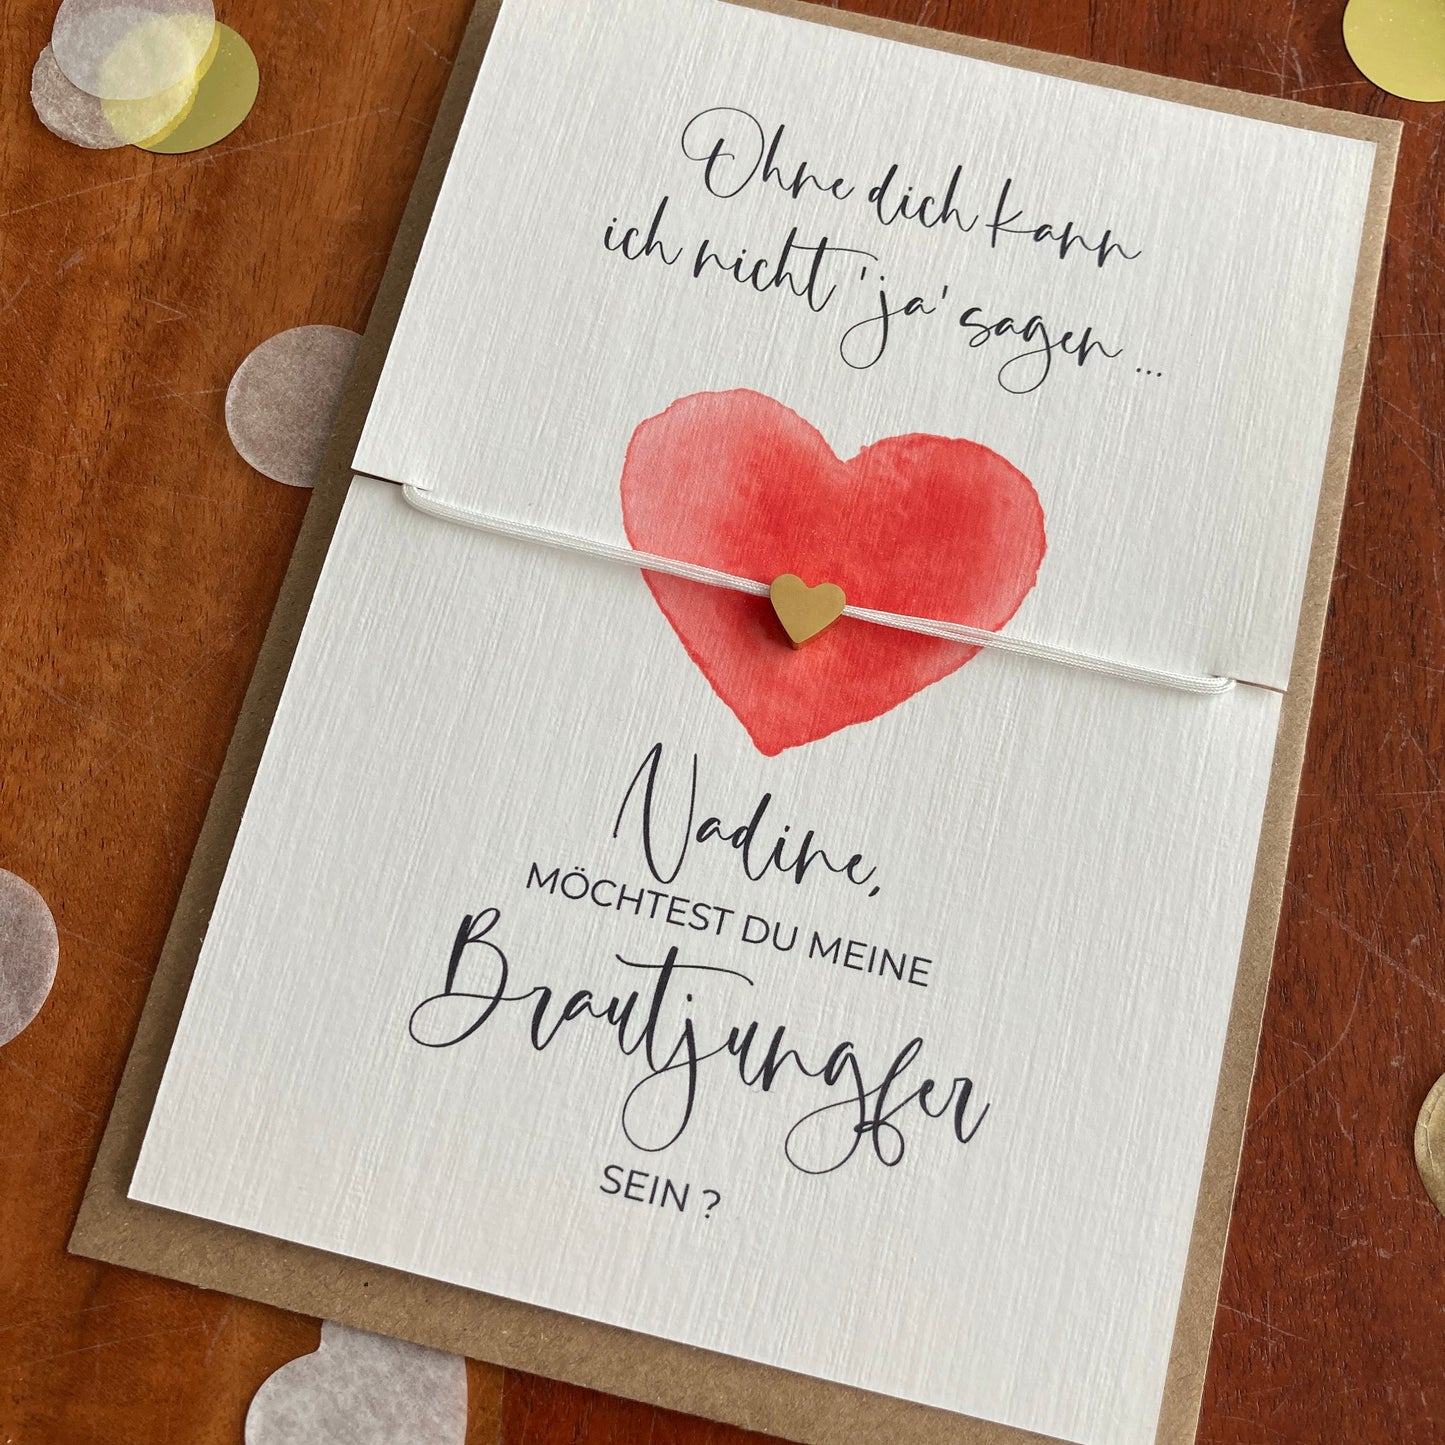 Ohne dich kann
ich nicht 'ja' sagen ...
Nadine,
MÖCHTEST DU MEINE
Brautjungfer
SEIN ?